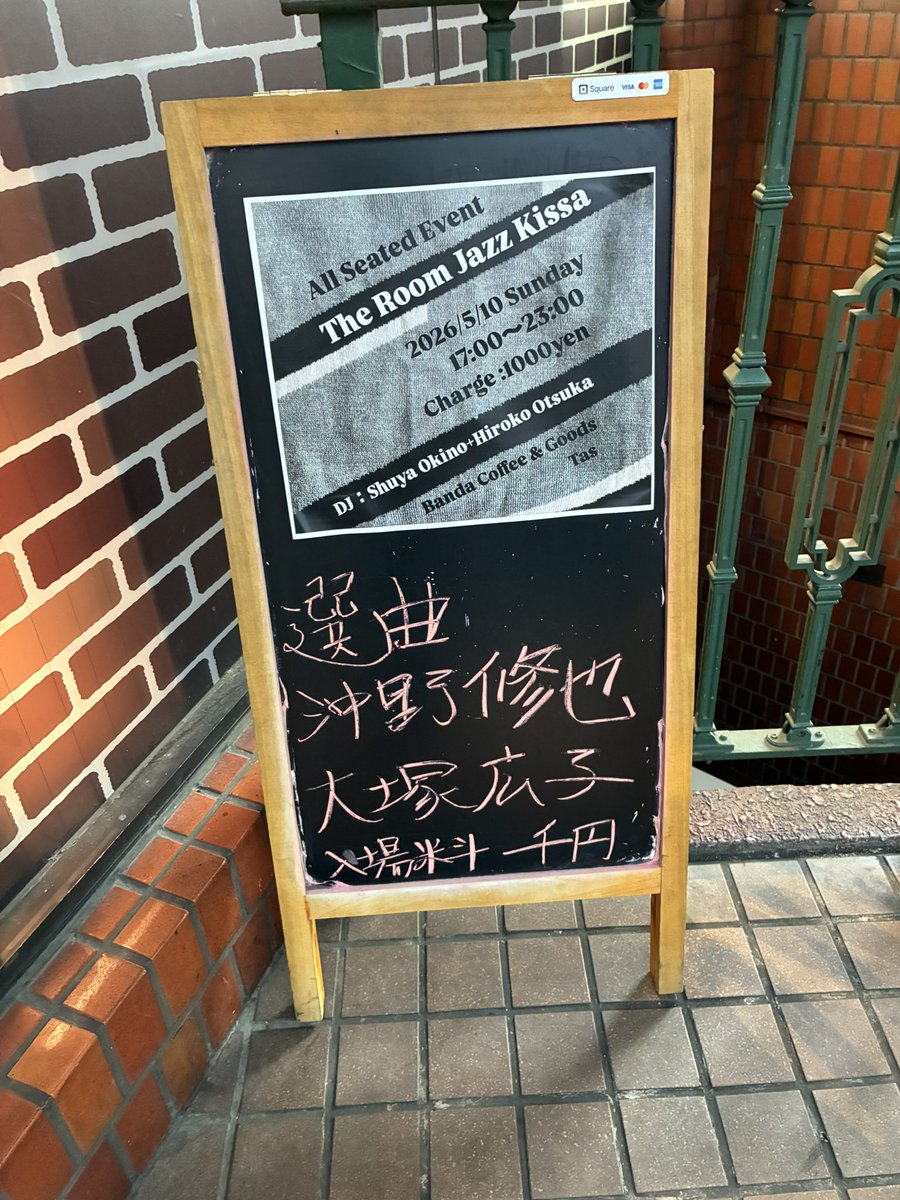 Square VISA
All Seated Event
The Room Jazz Kissa
2026/5/10 Sunday
17:00〜23:00
Charge :1000yen
DJ：Shuya Okino+Hiroko Otsuka
Banda Coffee & Goods
Tas
選曲
沖野修也
大塚広子
入場料 千円